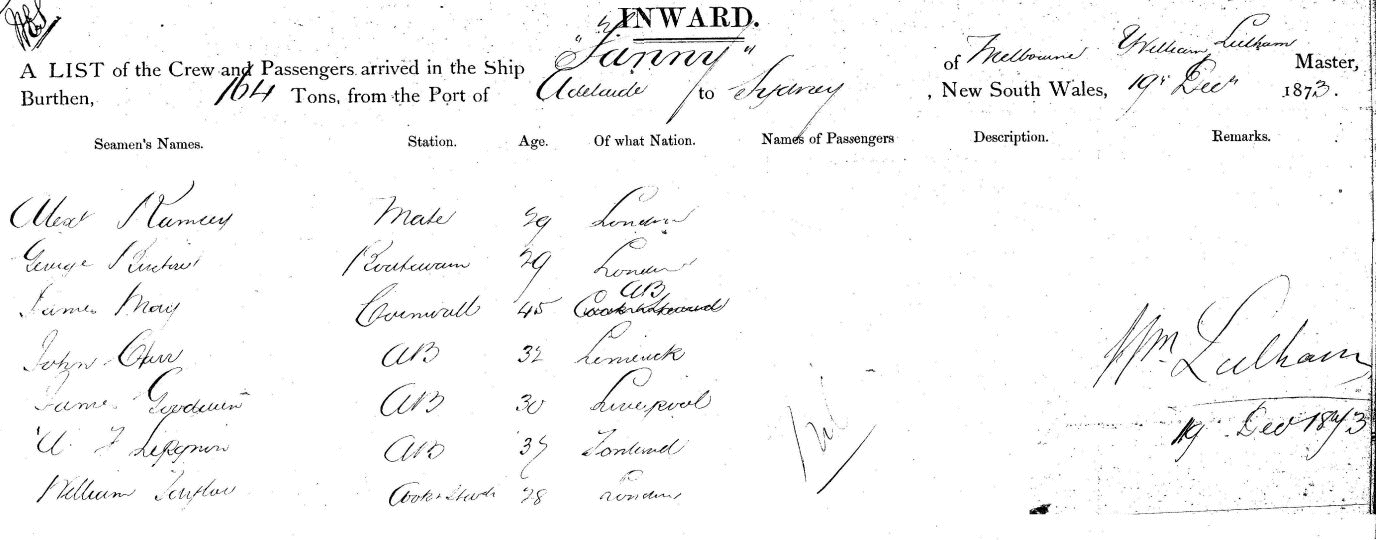 INWARD.
A LIST of the Crew and Passengers arrived in the Ship "Fanny" of Melbourne William Lulham Master,
Burthen, 164 Tons, from the Port of Adelaide to Sydney, New South Wales, 19th Decr 1873.
Seamen's Names. Station. Age. Of what Nation. Names of Passengers Description. Remarks.
Alext Ramsey Mate 29 London
George Boatswain 29 London
AB
James May Cornwall 45 Cook & Steward
John Carr AB 32 Limerick
Wm. Lulham
James Goodwin AB 30 Liverpool
Nil
19 Dec 1873
AB 37
William Cook & Stwd 28 London